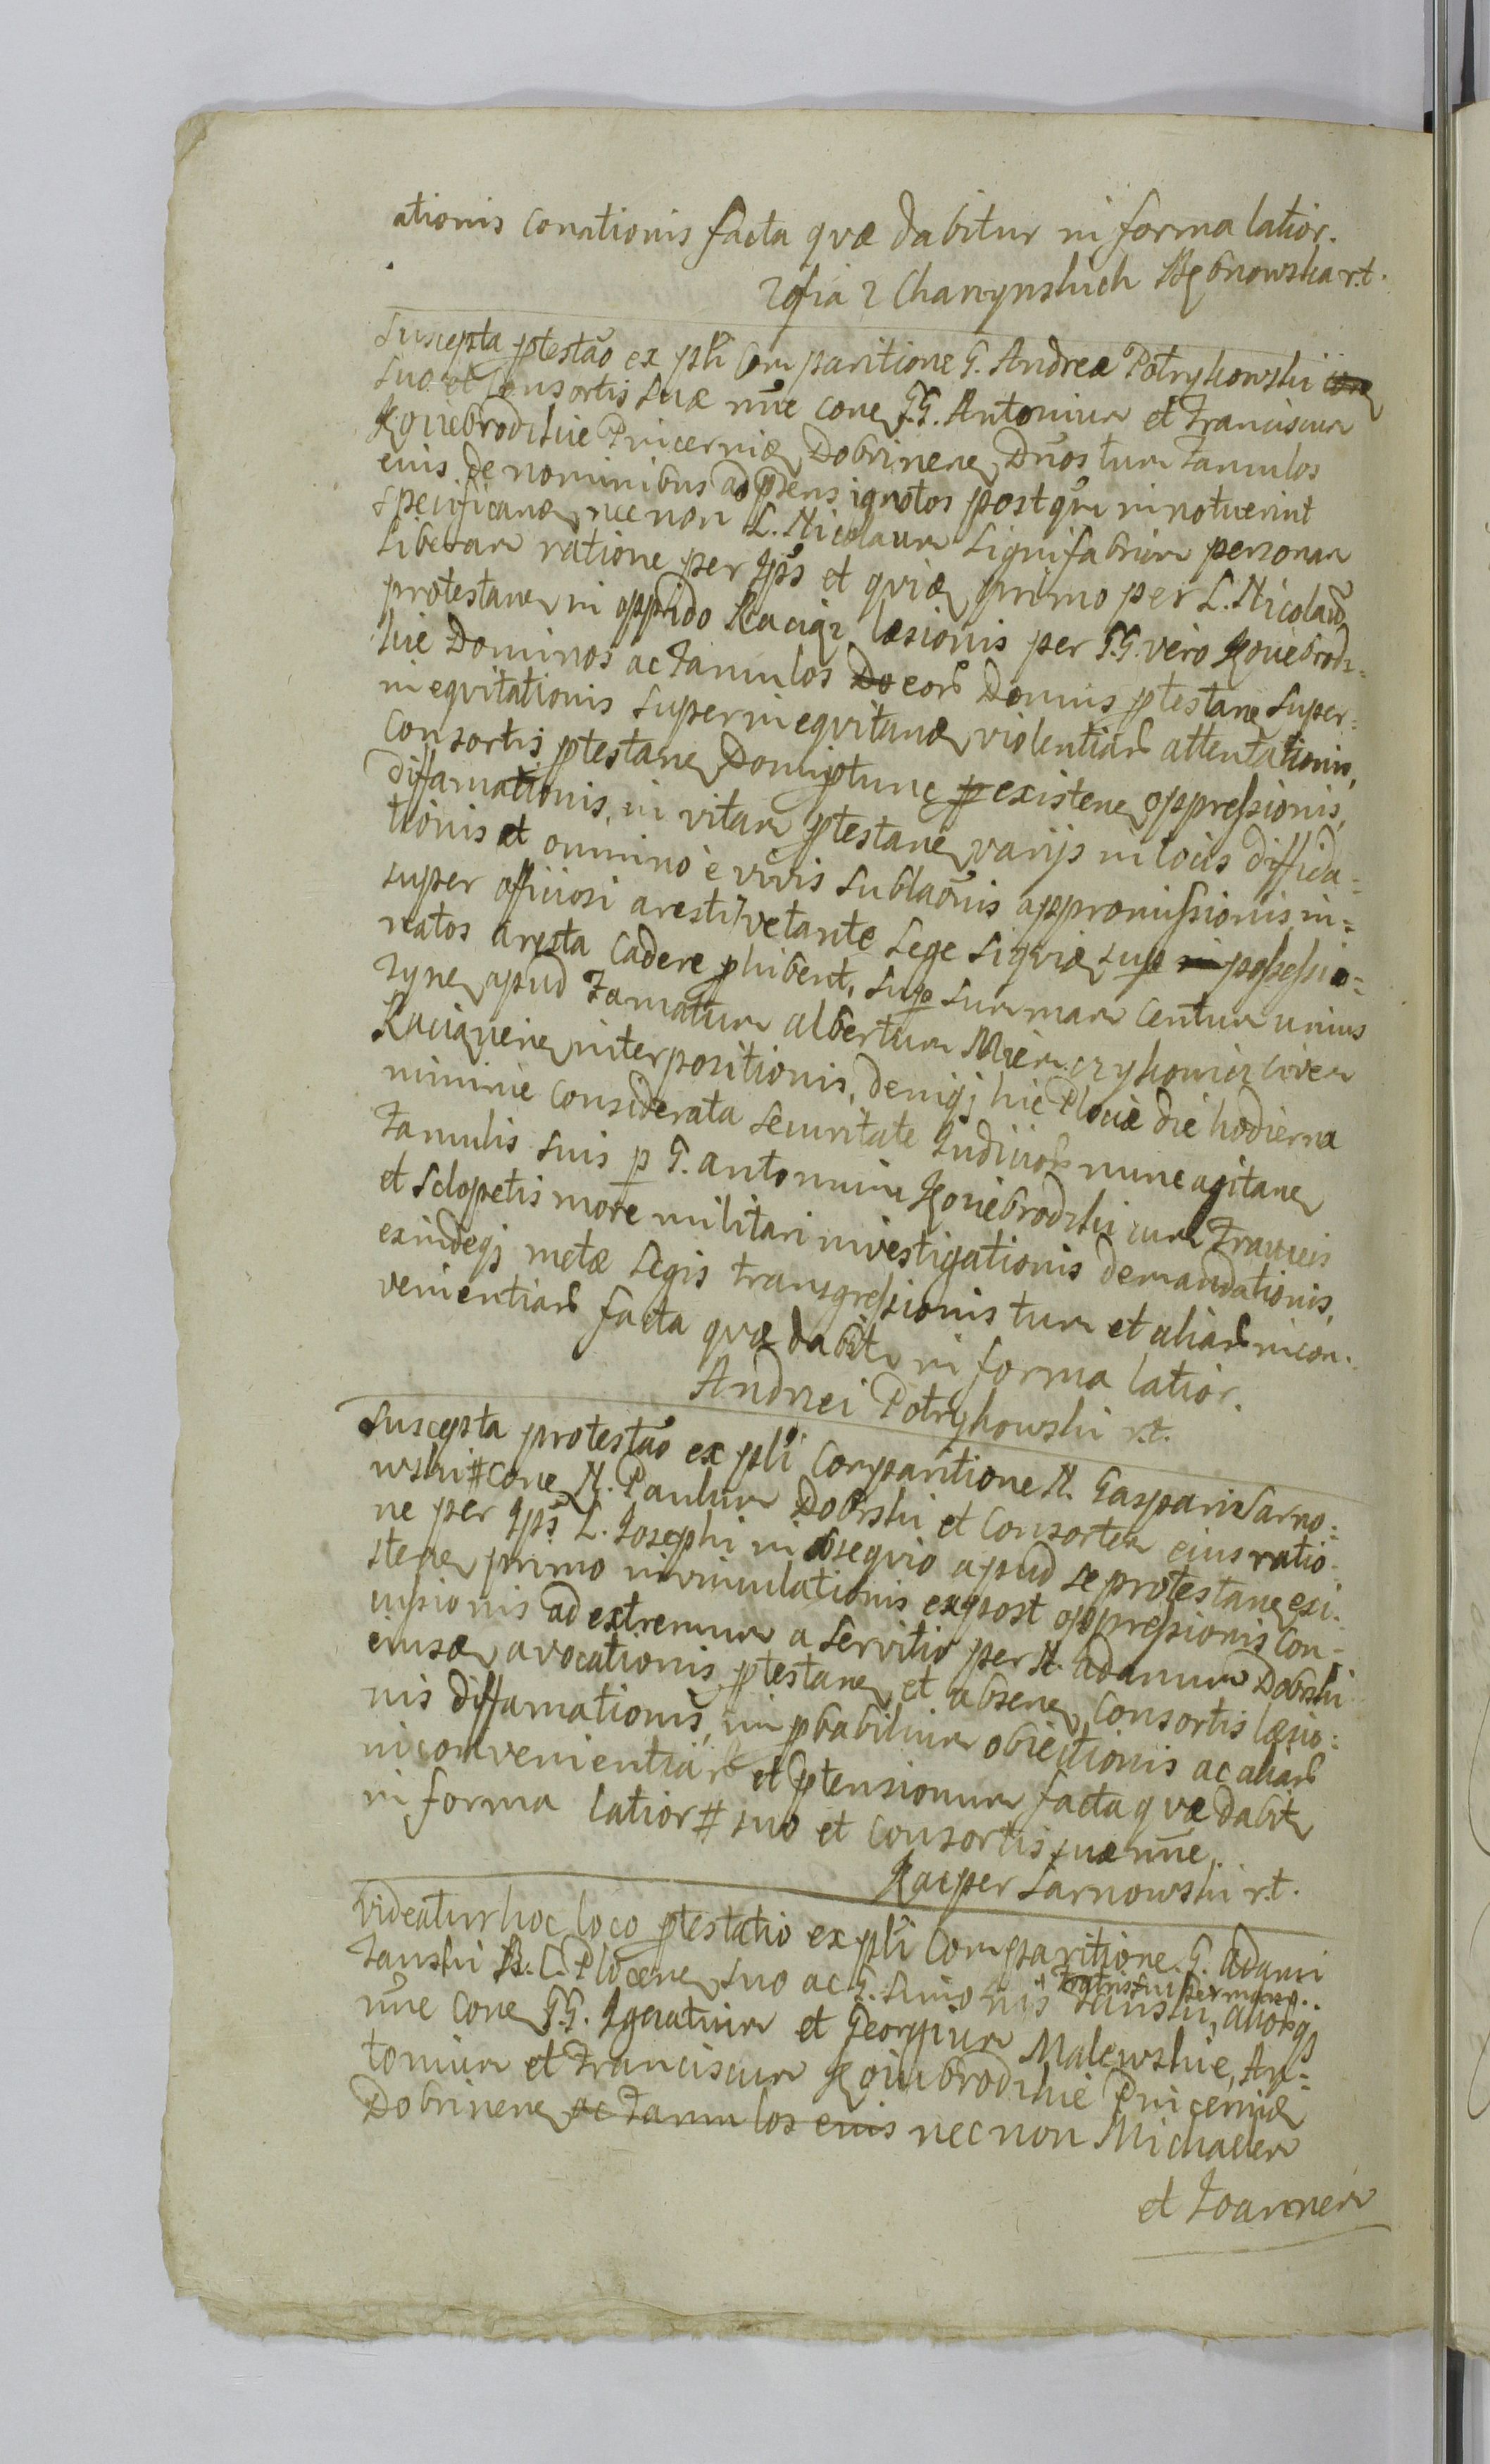 ationis conationis facta quæ dabitur in forma latior.
Zofia z Charzynskich Rębnowska r.t.
Suscepta ptestao ex pli Comparitione G. Andreæ Potrykowski
suo et Consortis suæ nne cone GG. Antonium et Franciscum
Koziebrodzkie Pincernidæ Dobrinene Dnos tum Famulos
eius de nominibus ad præns ignotos postqm innotuerint
specificandæ nec non L. Nicolaum Lignifabrum personam
liberam ratione per Ipsos et quidem primo per L. Nicolaum
protestane in oppido Raciąz læsionis per GG. vero Koziebrodz=
kie Dominos ac Famulos Do eor Domus ptestane super=
inequitationis superinequitandæ violentiar attentationis,
Consortis ptestane Domi ptunc p existene oppressionis,
diffamationis, in vitam ptestane varijs in locis diffida=
tionis et omnino è vivis sublaonis appromissionis, in=
super officiosi aresti vetante lege siquidem sup in possessio=
natos aresta cadere phibent, sup summam centum unius
zyne apud Famatum albertum Miem czykowicz civem
Raciązene interpositionis, deniq; hic Plociæ die hodierna
minime considerata securitate Iudicior nunc agitane
Famulis suis p G. antonium Koziebrodzki cum Frameis
et sclopetis more militari investigationis demandationis,
exindeq; metæ legis transgressionis tum et aliar incon=
venientiar facta quæ dabitr in forma latior.
Andrzei Potrykowski r.t.
Suscepta protestao ex pli Comparitione N. Gasparis Sarno=
wski # cone N. Paulum Dobrski et Consortem eius ratio=
ne per Ipsos L. Josephi in obsequio apud se protestane exi=
stene primo invinculationis expost oppressionis con=
cussionis ad extremum a servitio per N. Adamum Dobrski
eiusdem avocationis ptestane et absene Consortis læsio=
nis diffamationis, impbabilium obiectionis ac aliar
inconvenientiar et ptensionum facta quæ dabitr
in forma latior # suo et consortis suæ nne.
Kacper Sarnowski r.t.
Videatur hoc loco ptestatio ex pli Comparitione G. Adami
Zanski B. C. Plocene suo ac G. Simonis fratris sui germani Zanski, aliorq;
nne cone GG. Ignatium et Georgium Malewskie, An=
tonium et Franciscum Koziebrodzkie Pincernidæ
Dobrinene ac Famulos eius nec non Michaelem
et Joannem